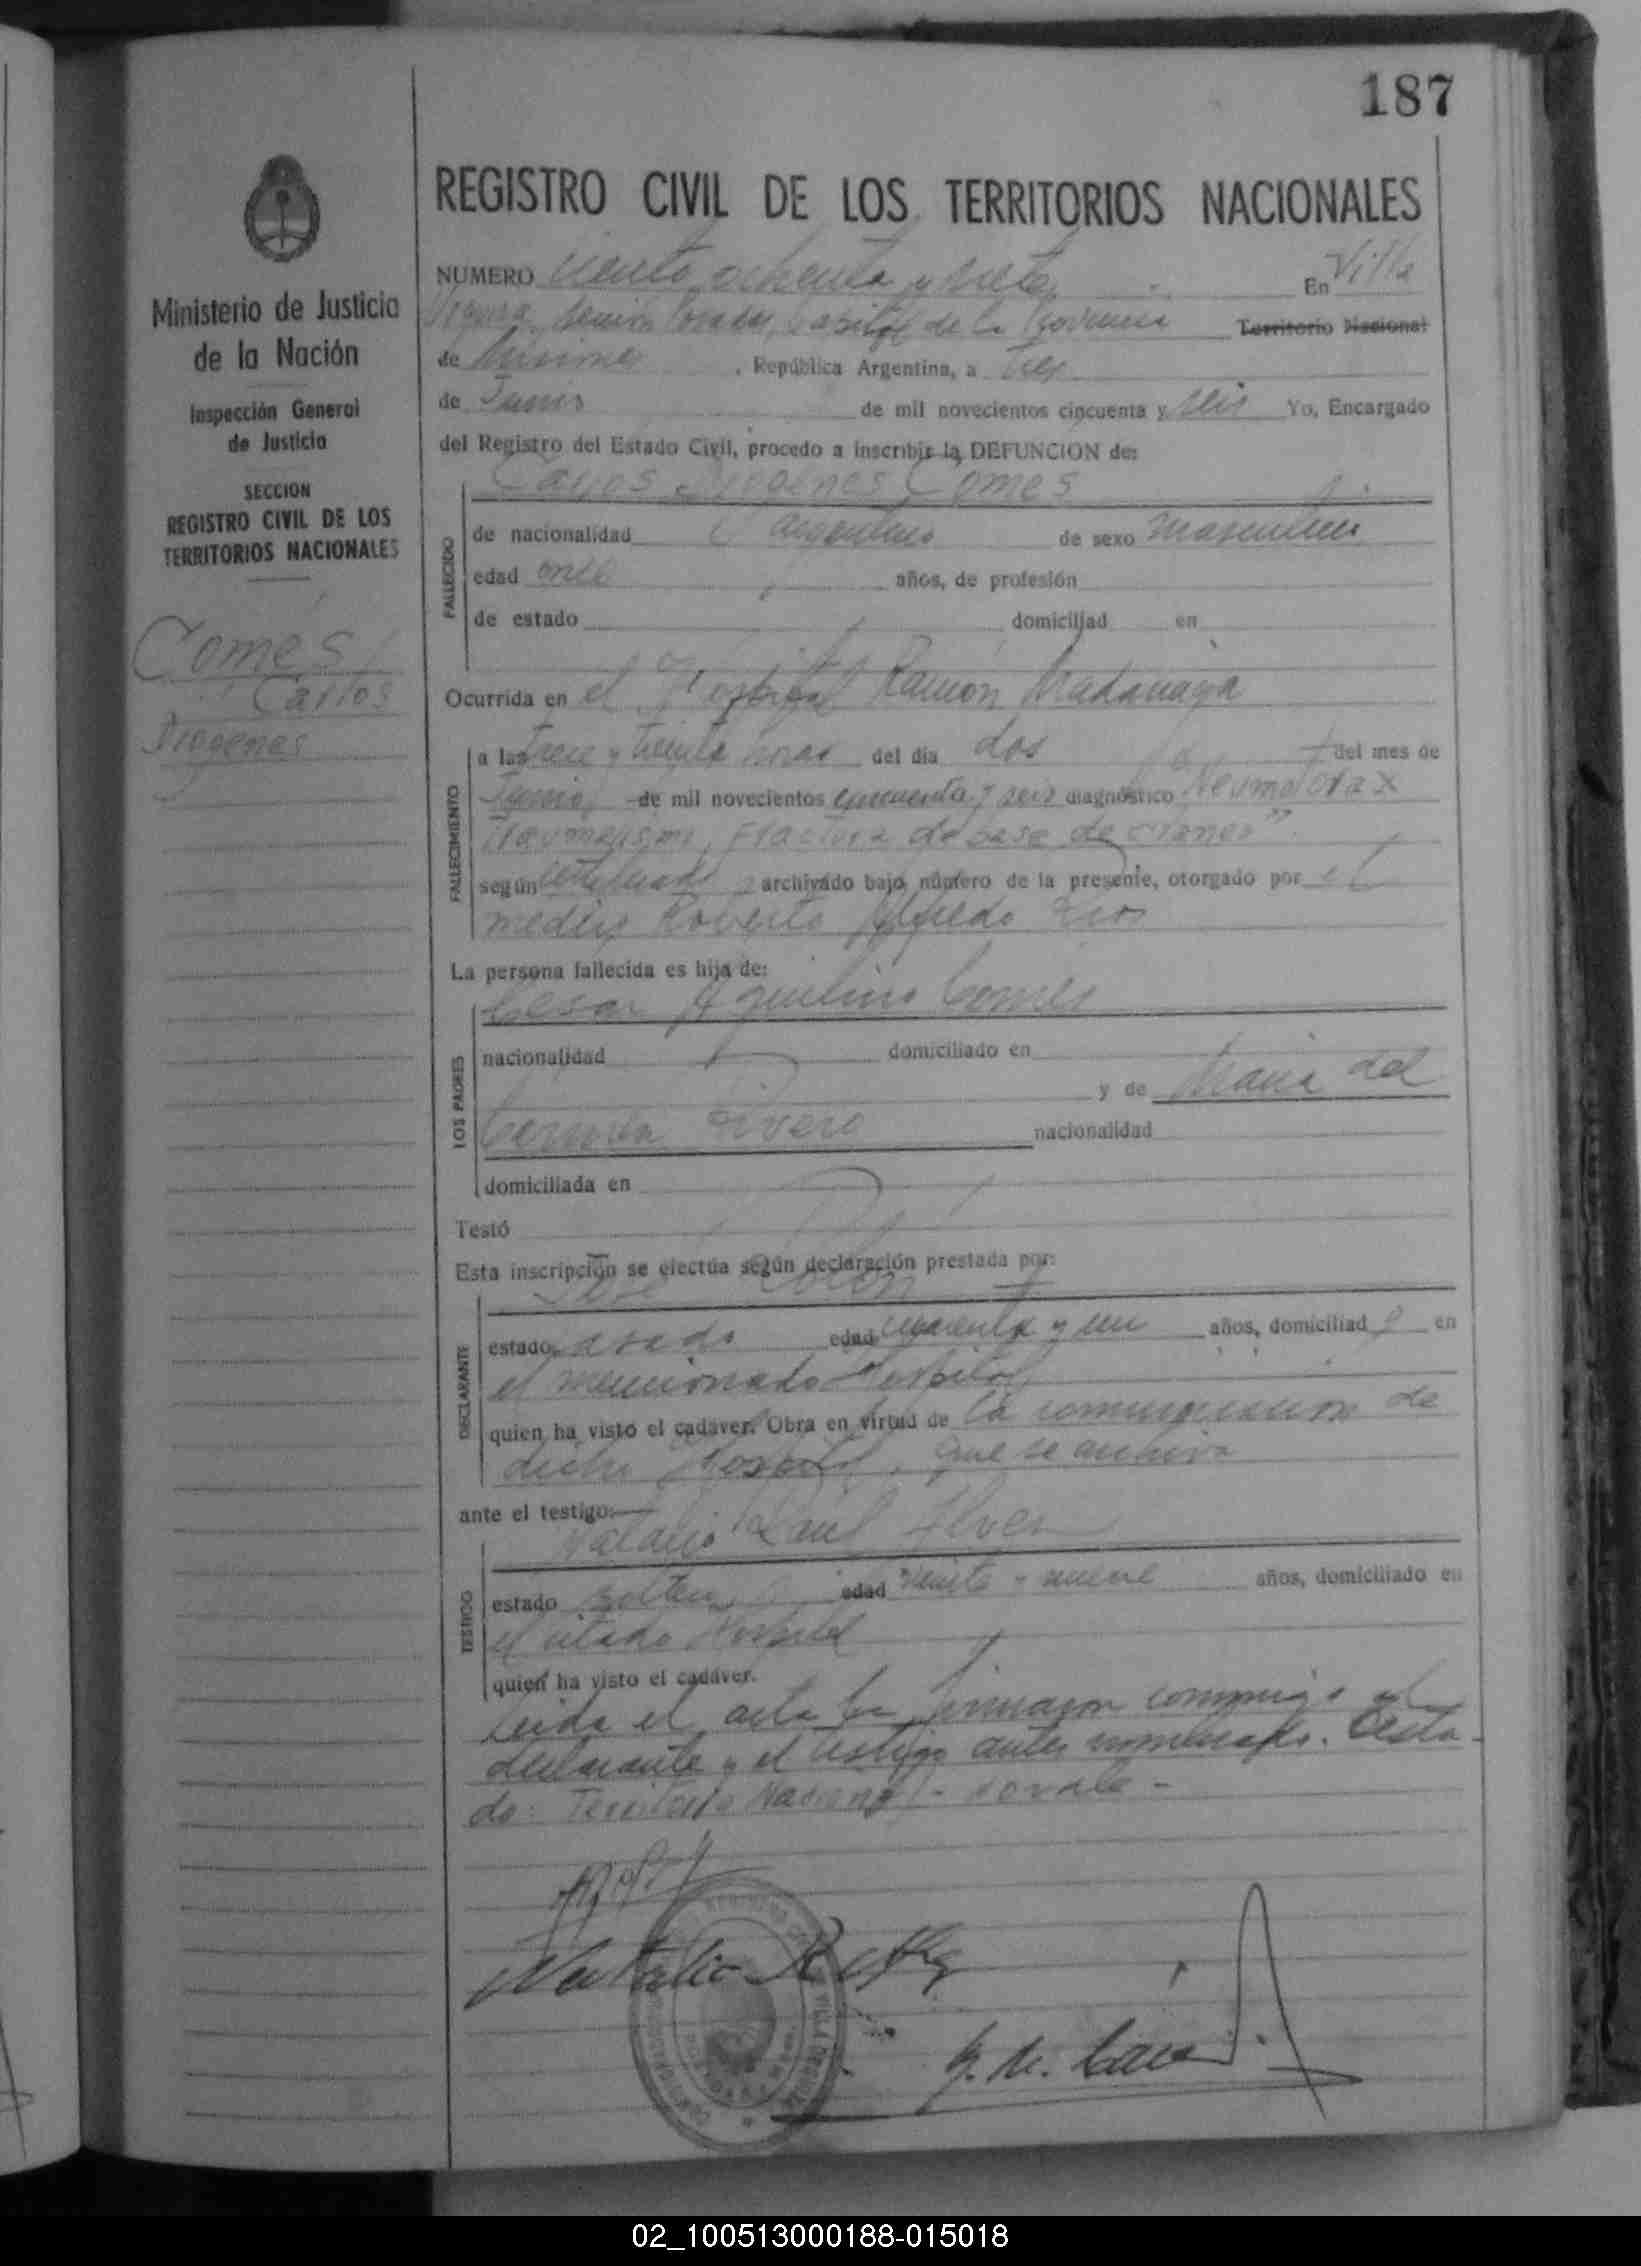 187
Ministerio de Justicia
de la Nación
Inspección General
de Justicia
SECCION
REGISTRO CIVIL DE LOS
TERRITORIOS NACIONALES
Comes
Carlos
Diogenes
REGISTRO CIVIL DE LOS TERRITORIOS NACIONALES
NUMERO ciento ochenta y siete En Villa
Capital de la Provincia Territorio Nacional
de Misiones, República Argentina, a tres
de Junio de mil novecientos cincuenta y seis Yo, Encargado
del Registro del Estado Civil, procedo a inscribir la DEFUNCION de:
Carlos Diogenes Comes
FALLECIDO
de nacionalidad argentino de sexo masculino
edad once años, de profesión
de estado domiciliad en
Ocurrida en el Hospital Ramón Madariaga
FALLECIMIENTO
a las trece y treinta horas del día dos del mes de
Junio de mil novecientos cincuenta y seis diagnóstico "Neumotorax
Fractura de base de craneo".
según certificado archivado bajo número de la presente, otorgado por el
medico Roberto Alfredo Rios
La persona fallecida es hija de:
LOS PADRES
Cesar Aquilino Comes
nacionalidad domiciliado en
y de Maria del
Carmen Rivero nacionalidad
domiciliada en
Testó
Esta inscripción se efectúa según declaración prestada por:
DECLARANTE
José
estado casado edad cuarenta y un años, domiciliad o en
el mencionado Hospital
quien ha visto el cadáver. Obra en virtud de la comunicacion de
dicho Hospital, que se archiva
ante el testigo:
TESTIGO
Natalio Raul
estado soltero edad veinte y nueve años, domiciliado en
el citado Hospital
quien ha visto el cadáver.
Leida el acta la firmaron conmigo el
declarante y el testigo antes nombrados. Testa-
do: Territorio Nacional - no vale -
Natalio R
02_100513000188-015018